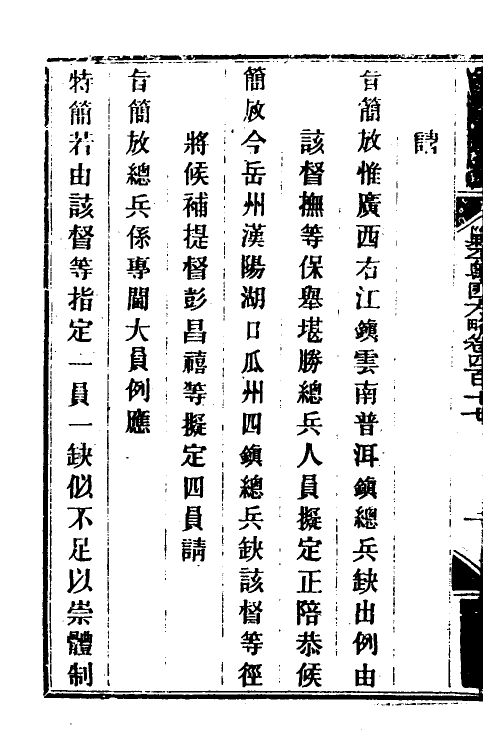 請
旨簡放惟廣西右江鎭雲南普洱鎭總兵缺出例由
該督撫等保舉堪勝總兵人員擬定正陪恭候
簡放今岳州漢陽湖口瓜州四鎭總兵缺該督等徑
將候補提督彭昌禧等擬定四員請
旨簡放總兵係專閫大員例應
特簡若由該督等指定一員一缺似不足以崇體制